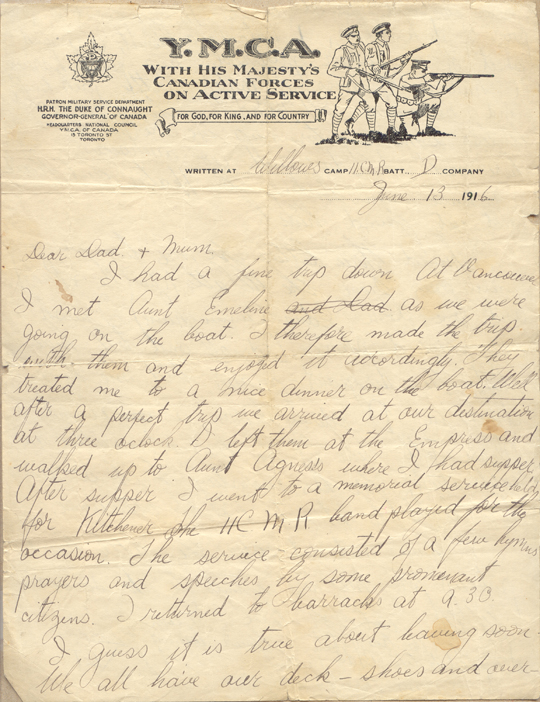 Y.M.C.A.
WITH HIS MAJESTY'S
CANADIAN FORCES
ON ACTIVE SERVICE
FOR GOD, FOR KING, AND FOR COUNTRY
PATRON MILITARY SERVICE DEPARTMENT
H.R.H. THE DUKE OF CONNAUGHT
GOVERNOR-GENERAL OF CANADA
HEADQUARTERS NATIONAL COUNCIL
Y.M.C.A. OF CANADA
15 TORONTO ST
TORONTO
WRITTEN AT Willows CAMP 11 CMR BATT. D COMPANY
June 13 1916
Dear Dad. + Mum.
I had a fine trip down At Vancouver
I met Aunt Emeline and Dad as we were
going on the boat. I therefore made the trip
with them and enjoyed it accordingly. They
treated me to a nice dinner on the boat. Well
after a perfect trip we arrived at our destination
at three oclock. I left them at the Empress and
walked up to Aunt Agness where I had supper
After supper I went to a memorial service held
for Kitchener the 11 C M R band played for the
occasion. The service consisted of a few hymns
prayers and speeches by some promenant
citizens. I returned to barracks at 9.30
I guess it is true about leaving soon-
We all have our deck-shoes and over-